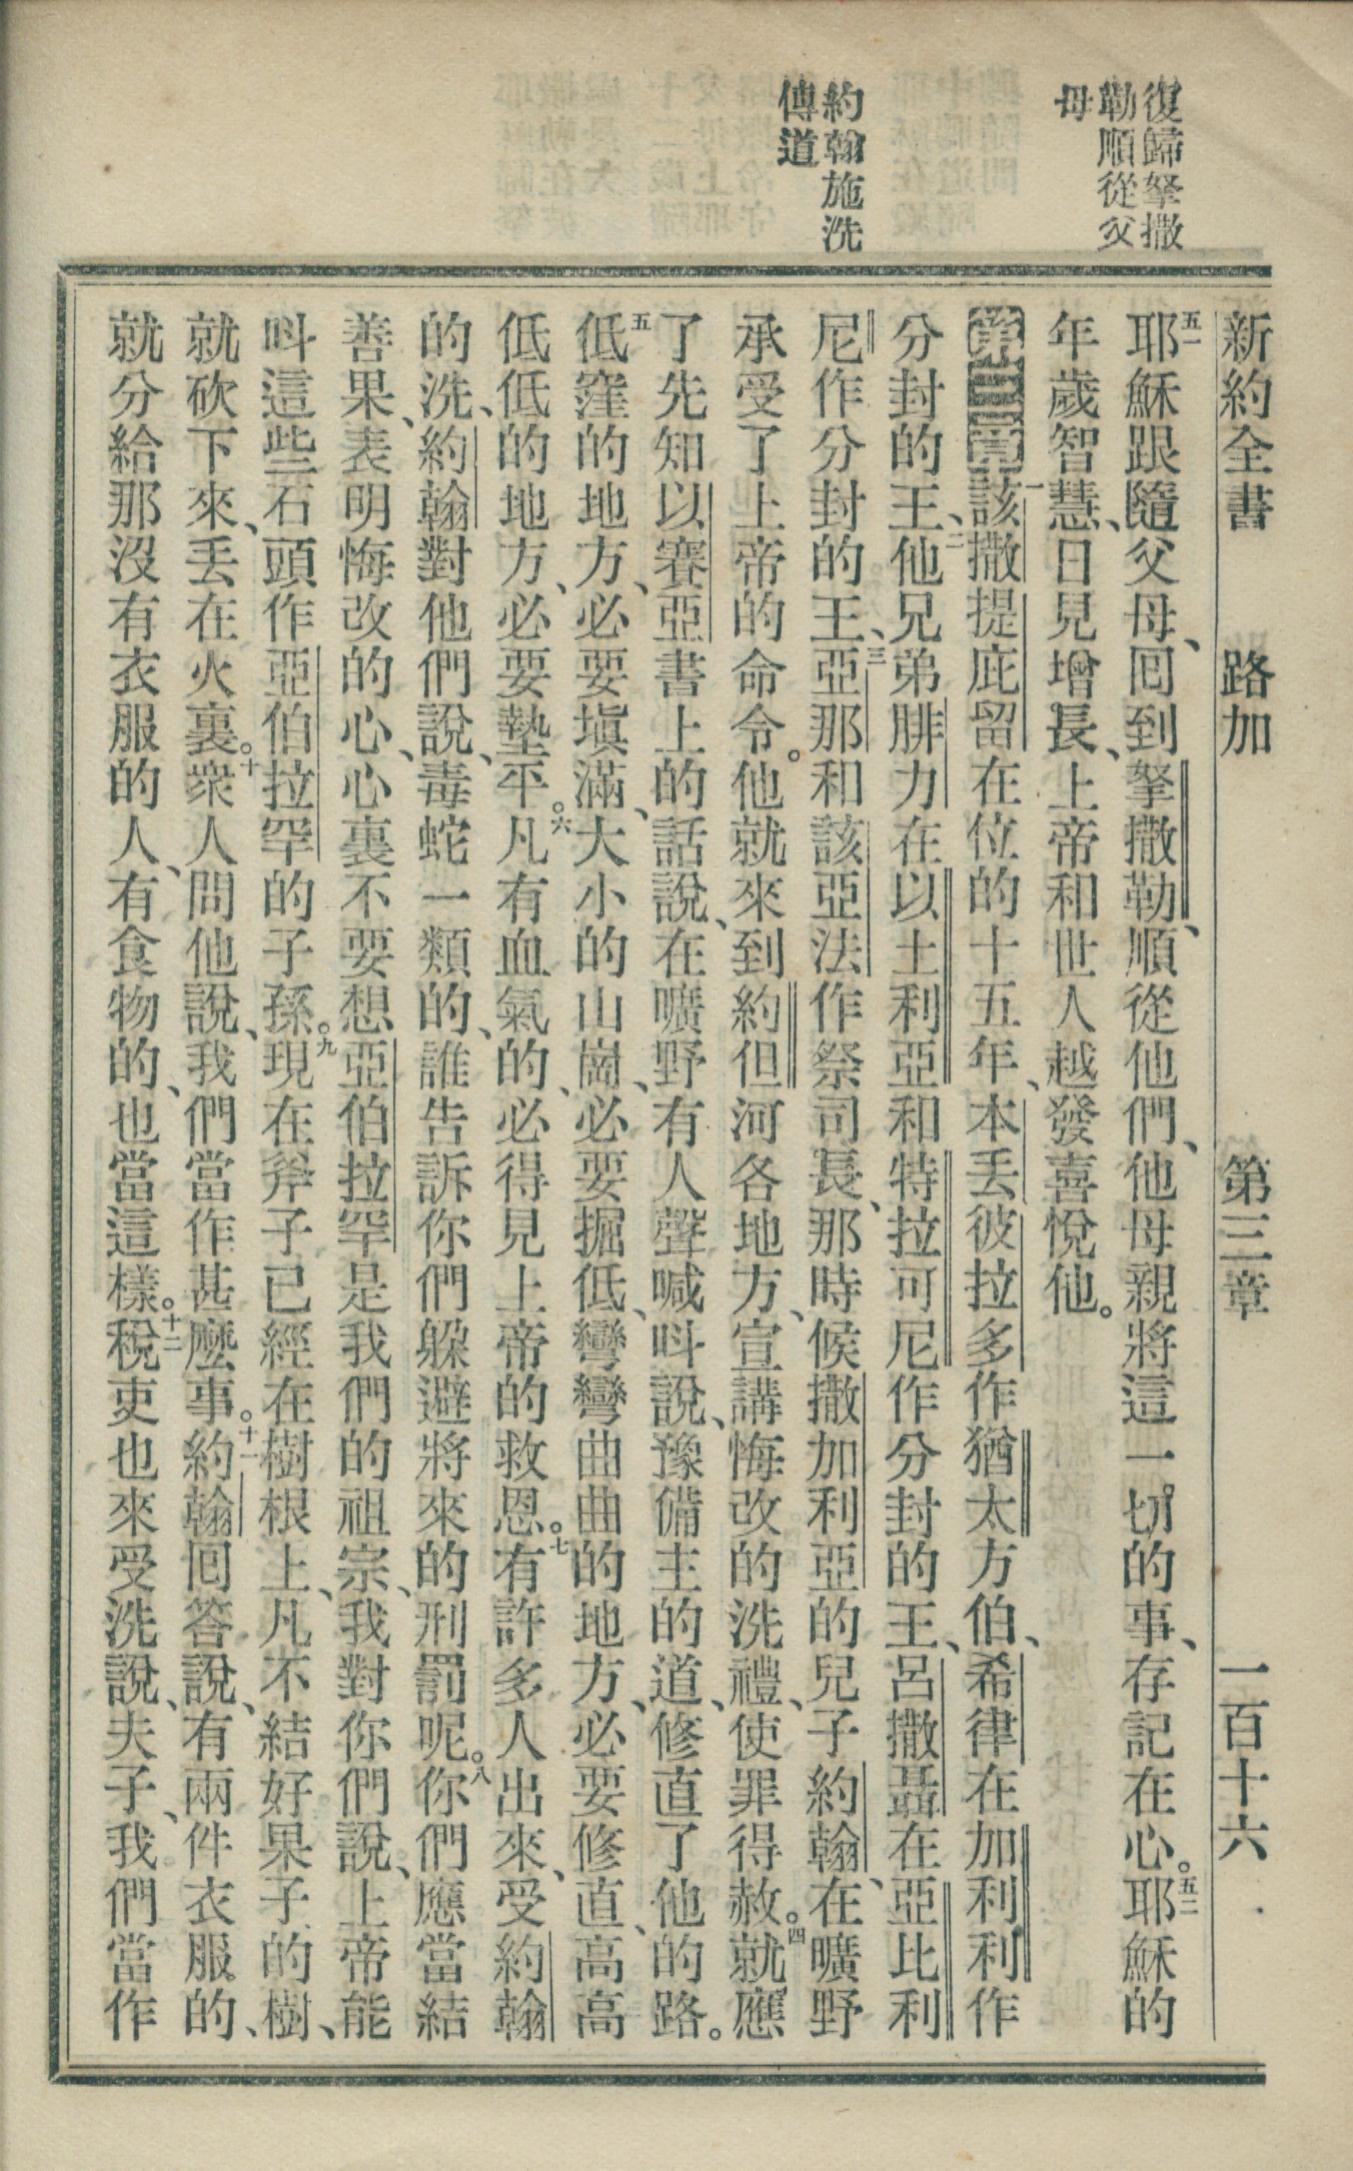 復歸拏撒
勒順從父
母
約翰施洗
傳道
新約全書 路加 第三章 一百十六
五一耶穌跟隨父母、囘到拏撒勒、順從他們、他母親將這一切的事、存記在心。五二耶穌的
年歲智慧、日見增長、上帝和世人越發喜悅他。
第三章一該撒提庇留在位的十五年、本丟彼拉多作猶太方伯、希律在加利利作
分封的王、二他兄弟腓力在以土利亞和特拉可尼作分封的王、呂撒聶在亞比利
尼作分封的王、三亞那和該亞法作祭司長、那時候撒加利亞的兒子約翰、在曠野
承受了上帝的命令。他就來到約但河各地方、宣講悔改的洗禮、使罪得赦。四就應
了先知以賽亞書上的話說、在曠野有人聲喊呌說、豫備主的道、修直了他的路。
五低窪的地方、必要塡滿、大小的山崗、必要掘低、彎彎曲曲的地方、必要修直、高高
低低的地方、必要墊平。六凡有血氣的、必得見上帝的救恩。七有許多人出來、受約翰
的洗、約翰對他們說、毒蛇一類的、誰告訴你們躲避將來的刑罰呢。八你們應當結
善果、表明悔改的心、心裏不要想亞伯拉罕是我們的祖宗、我對你們說、上帝能
呌這些石頭作亞伯拉罕的子孫。九現在斧子已經在樹根上、凡不結好果子的樹、
就砍下來、丟在火裏。十衆人問他說、我們當作甚麽事。十一約翰囘答說、有兩件衣服的、
就分給那沒有衣服的人、有食物的、也當這樣。十二稅吏也來受洗說、夫子、我們當作